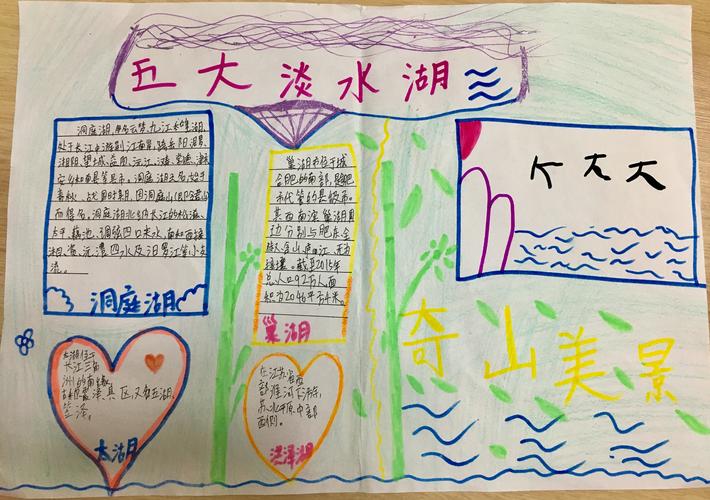 五大淡水湖
洞庭湖,
处于长江中游荆江南岸,跨岳阳、汨罗、
湘阴、望城、益阳、沅江、汉寿、常德、津市、
安乡和南县等县市。洞庭湖之名,始于
春秋、战国时期,因洞庭山(即今君山)
而得名。洞庭湖北纳长江的松滋、
太平、藕池、调弦四口来水,南和西接
湘、资、沅、澧四水及汨罗江等小支
流。
洞庭湖
巢湖市位于
合肥的南部,
市代管的县级市。
边分别与肥东、含
接壤。截至2015年
总人口92万人,面
积为2046平方千米。
巢湖
太湖位于
长江三角
洲的南缘,
古称震泽、具区,又名五湖、
笠泽,
太湖
在江苏省西
部淮河下游,
苏北平原中部
西侧。
洪泽湖
大大
奇山美景